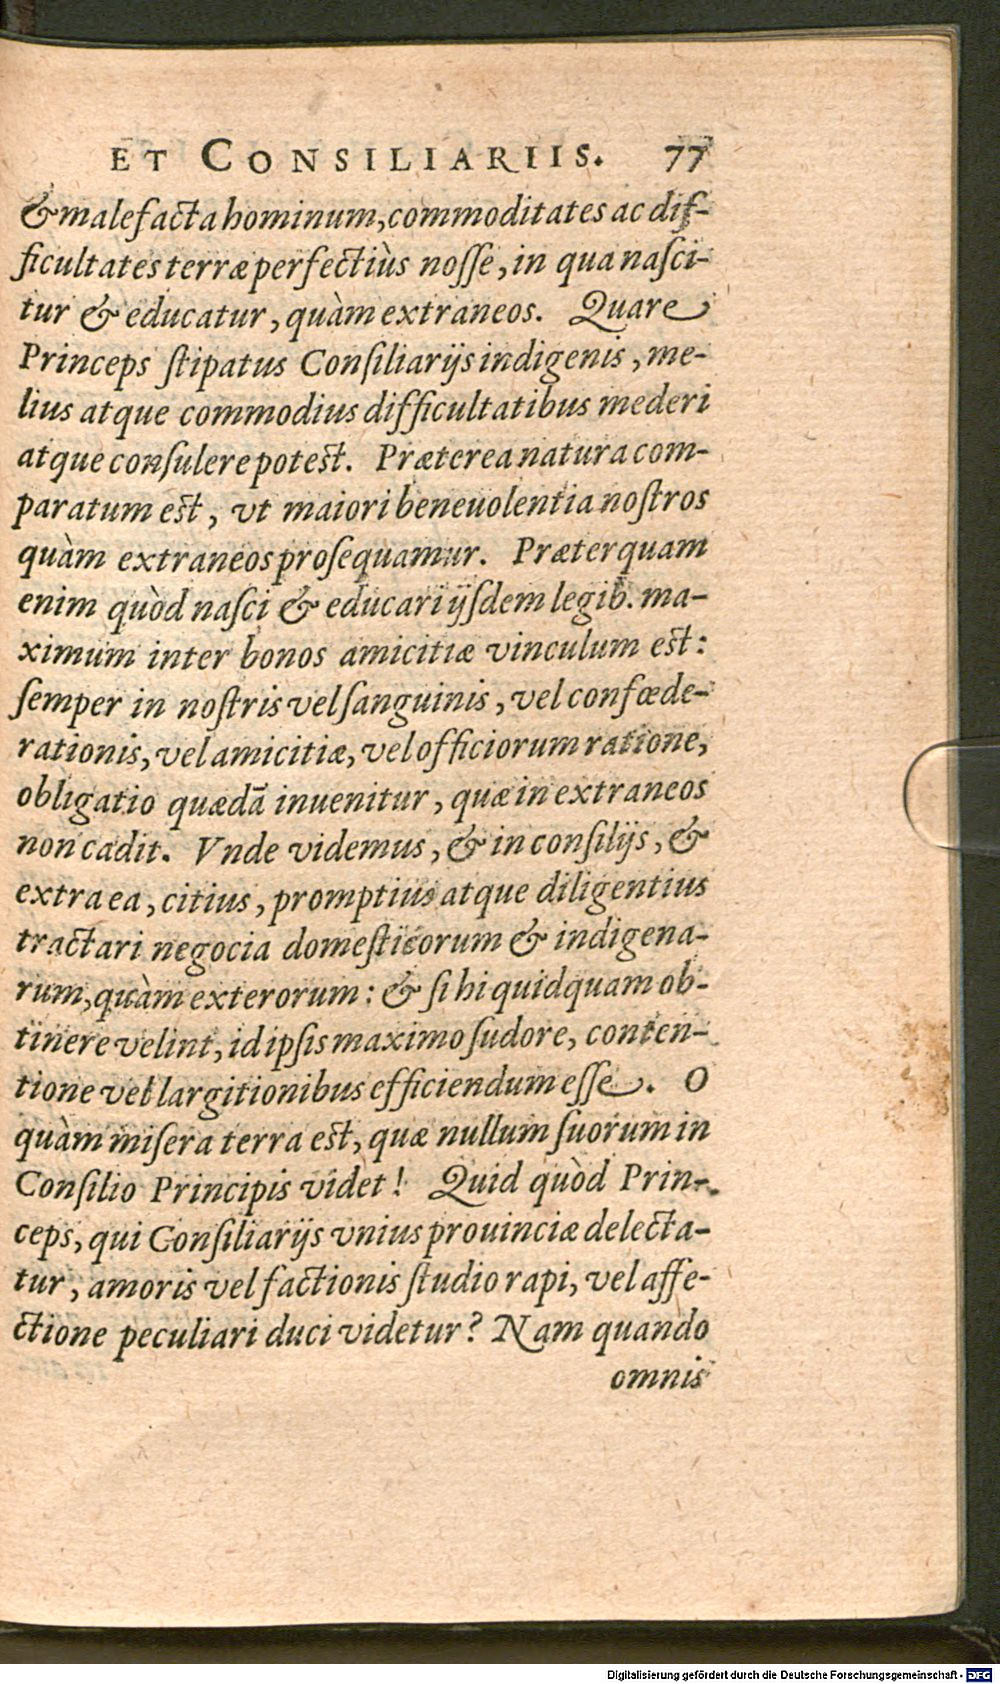 ET CONSILIARIIS. 77
& malefacta hominum, commoditates ac dif-
ficultates terræ perfectiùs noſſe, in qua naſci-
tur & educatur, quàm extraneos. Quare
Princeps ſtipatus Conſiliarijs indigenis, me-
lius atque commodius difficultatibus mederi
atque conſulere poteſt. Præterea natura com-
paratum eſt, vt maiori beneuolentia noſtros
quàm extraneos proſequamur. Præterquam
enim quòd naſci & educari ijſdem legib. ma-
ximum inter bonos amicitiæ vinculum eſt:
ſemper in noſtris vel ſanguinis, vel confœde-
rationis, vel amicitiæ, vel officiorum ratione,
obligatio quædã inuenitur, quæ in extraneos
non cadit. Vnde videmus, & in conſilijs, &
extra ea, citius, promptius atque diligentius
tractari negocia domeſticorum & indigena-
rum, quàm exterorum: & ſi hi quidquam ob-
tinere velint, id ipſis maximo ſudore, conten-
tione vel largitionibus efficiendum eſſe. O
quàm miſera terra eſt, quæ nullum ſuorum in
Conſilio Principis videt! Quid quòd Prin-
ceps, qui Conſiliarijs vnius prouinciæ delecta-
tur, amoris vel factionis ſtudio rapi, vel affe-
ctione peculiari duci videtur? Nam quando
omnis
Digitalisierung gefördert durch die Deutsche Forschungsgemeinschaft - DFG